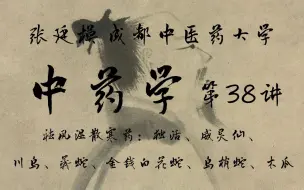 张廷模成都中医药大学
中药学第38讲
祛风湿散寒药:独活、威灵仙、
川乌、蕲蛇、金钱白花蛇、乌梢蛇、木瓜